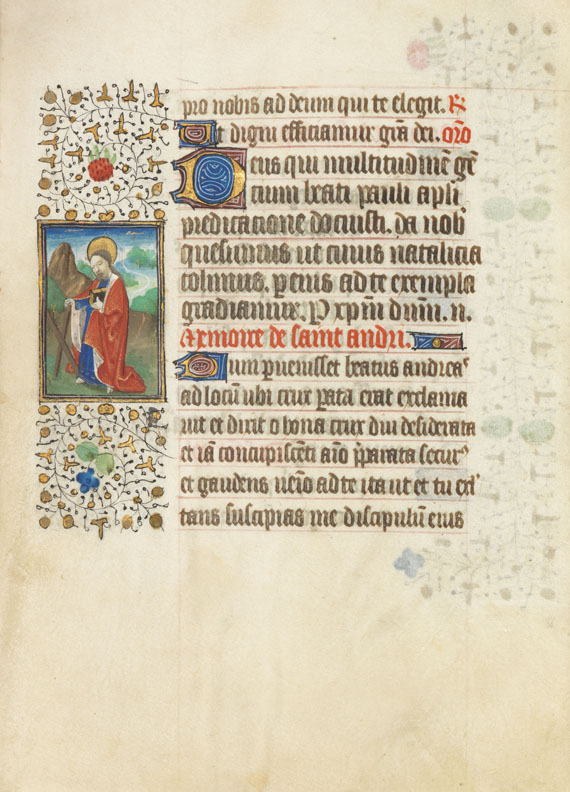 pro nobis ad deum qui te elegit. R
Ut digni efficiamur gr̄a dei. or̄o
Deus qui multitudinē gē
tium beati pauli apl̄i
predicatione docuisti. da nob̄
quesumus ut cuius natalicia
colimus. eius ad te exempla
gradiamur. P xp̄m dnm̄. n.
Memoire de saint andri.
Cum puenisset beatus andreaˢ
ad locū ubi crux pata erat exclama
uit et dixit o bona crux diu desiderata
et iā concupiscēti aīo p̄parata securˢ
et gaudens uēio ad te ita ut et tu exl̄
tans suscipias me discipulū eius